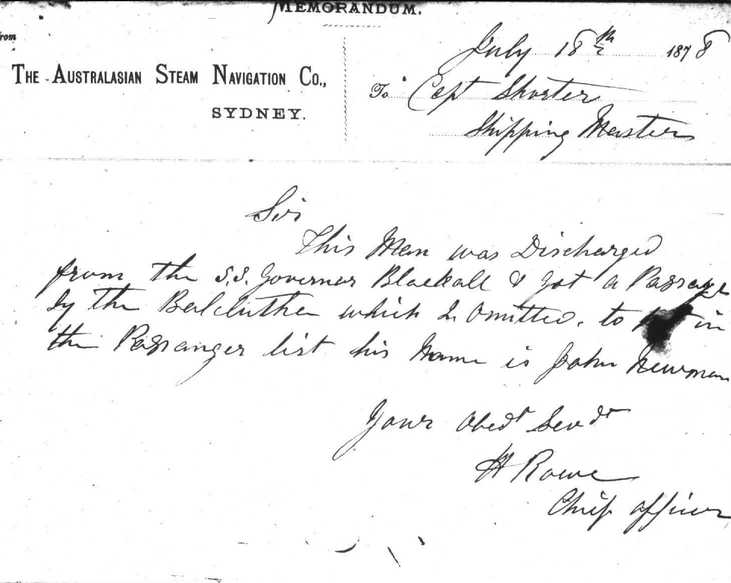 MEMORANDUM.
From
July 18th 1878
THE AUSTRALASIAN STEAM NAVIGATION CO.,
To Capt Shorter
SYDNEY.
Shipping Master
Sir
This Man was Discharged
from the S.S. Governor Blackall & got a Passage
by the Balclutha which I Omitted. to in
the Passanger list his Name is John Newman
Your Obedt Servt
H Rowe
Chief officer